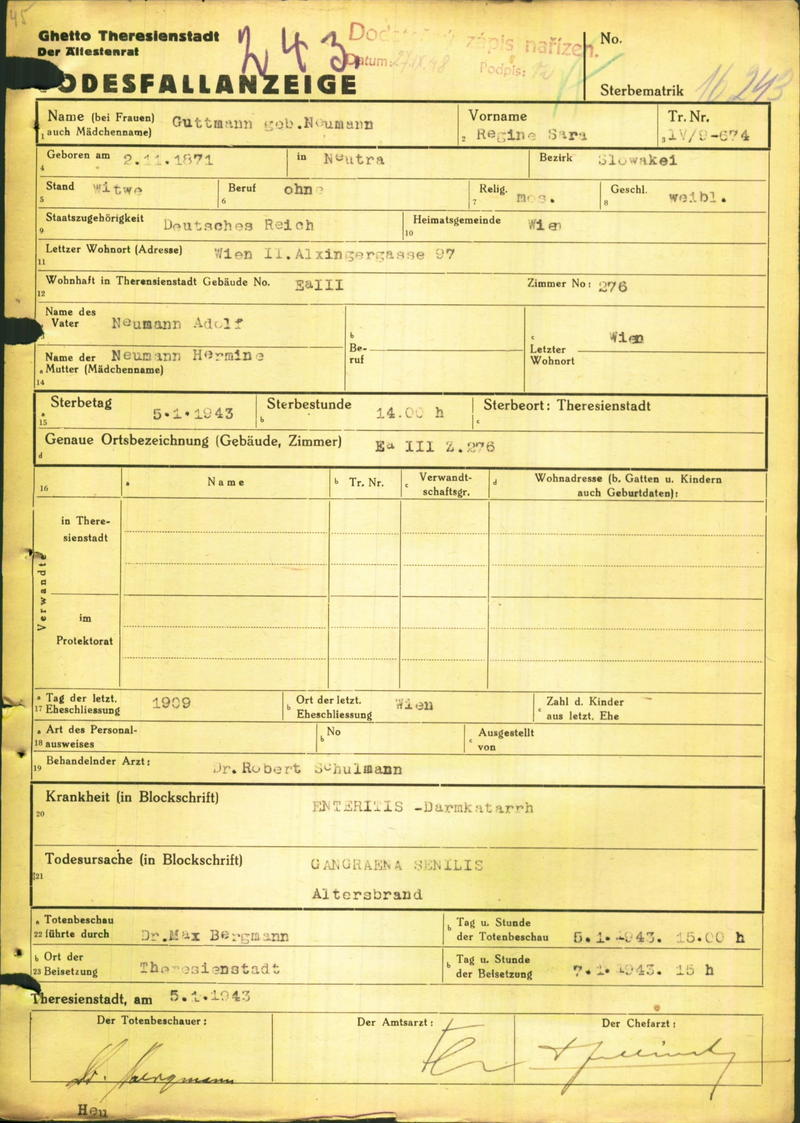 45
Ghetto Theresienstadt
Der Ältestenrat
243
Dodatečný zápis nařízen.
Datum: 27/IX.48 Podpis:
No.
TODESFALLANZEIGE
Sterbematrik 16 243
Name (bei Frauen) auch Mädchenname) Guttmann geb.Neumann
Vorname Regine Sara
Tr. Nr. IV/9-674
Geboren am 2.11.1871 in Neutra Bezirk Slowakei
Stand Witwe Beruf ohne Relig. mos. Geschl. weibl.
Staatszugehörigkeit Deutsches Reich Heimatsgemeinde Wien
Lettzer Wohnort (Adresse) Wien II.Alxingergasse 97
Wohnhaft in Therensienstadt Gebäude No. EaIII Zimmer No: 276
Name des Vater Neumann Adolf
Name der Mutter (Mädchenname) Neumann Hermine
Be-ruf
Letzter Wohnort Wien
Sterbetag 5.1.1943 Sterbestunde 14.00 h Sterbeort: Theresienstadt
Genaue Ortsbezeichnung (Gebäude, Zimmer) Ea III Z.276
16 a Name b Tr. Nr. c Verwandt-schaftsgr. d Wohnadresse (b. Gatten u. Kindern auch Geburtdaten):
Verwandte
in There-sienstadt
im Protektorat
Tag der letzt. Eheschliessung 1909 Ort der letzt. Eheschliessung Wien Zahl d. Kinder aus letzt. Ehe —
Art des Personal-ausweises No Ausgestellt von
Behandelnder Arzt: Dr.Robert Schulmann
Krankheit (in Blockschrift) ENTERITIS -Darmkatarrh
Todesursache (in Blockschrift) GANGRAENA SENILIS
Altersbrand
Totenbeschau führte durch Dr.Max Bergmann Tag u. Stunde der Totenbeschau 5.1.1943. 15.00 h
Ort der Beisetzung Theresienstadt Tag u. Stunde der Beisetzung 7.1.1943. 15 h
Theresienstadt, am 5.1.1943
Der Totenbeschauer: Der Amtsarzt: Der Chefarzt:
Dr. Bergmann
Heu